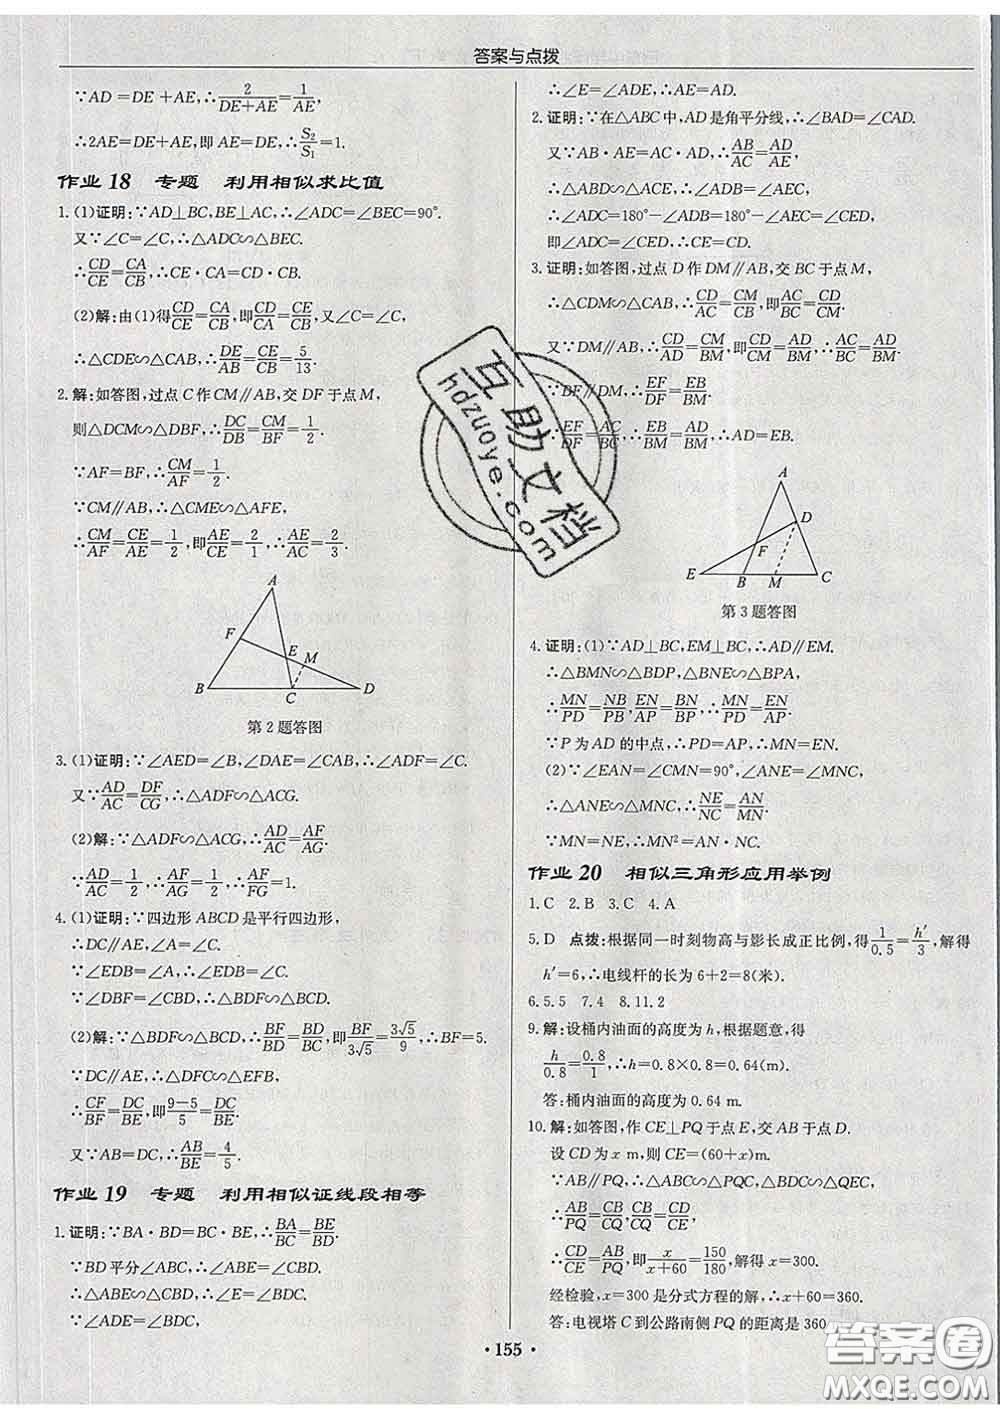 答案与点拨
∵AD=DE+AE,∴2/(DE+AE)=1/AE,
∴2AE=DE+AE,即AE=DE,∴S₂/S₁=1.
作业18 专题 利用相似求比值
1.(1)证明:∵AD⊥BC,BE⊥AC,∴∠ADC=∠BEC=90°.
又∵∠C=∠C,∴△ADC∽△BEC.
∴CD/CE=CA/CB,∴CE·CA=CD·CB.
(2)解:由(1)得CD/CE=CA/CB,即CD/CA=CE/CB,又∠C=∠C,
∴△CDE∽△CAB,∴DE/AB=CE/CB=5/13.
2.解:如答图,过点C作CM∥AB,交DF于点M,
则△DCM∽△DBF,∴DC/DB=CM/BF=1/2.
∵AF=BF,∴CM/AF=1/2.
∵CM∥AB,∴△CME∽△AFE,
∴CM/AF=CE/AE=1/2,即AE/CE=2/1,∴AE/AC=2/3.
A
F
E
M
B
C
D
第2题答图
3.(1)证明:∵∠AED=∠B,∠DAE=∠CAB,∴∠ADF=∠C.
又∵AD/AC=DF/CG,∴△ADF∽△ACG.
(2)解:∵△ADF∽△ACG,∴AD/AC=AF/AG.
∵AD/AC=1/2,∴AF/AG=1/2,∴AF/FG=1.
4.(1)证明:∵四边形ABCD是平行四边形,
∴DC∥AE,∠A=∠C.
∵∠EDB=∠A,∴∠EDB=∠C.
∵∠DBF=∠CBD,∴△BDF∽△BCD.
(2)解:∵△BDF∽△BCD,∴BF/BD=BD/BC,即BF/3√5=3√5/9,∴BF=5.
∵DC∥AE,∴△DFC∽△EFB,
∴CF/BF=DC/BE,即(9-5)/5=DC/BE.
又∵AB=DC,∴AB/BE=4/5.
作业19 专题 利用相似证线段相等
1.证明:∵BA·BD=BC·BE,∴BA/BC=BE/BD.
∵BD平分∠ABC,∴∠ABE=∠CBD.
∴△ABE∽△CBD,∴∠E=∠BDC.
∵∠ADE=∠BDC,
∴∠E=∠ADE,∴AE=AD.
2.证明:∵在△ABC中,AD是角平分线,∴∠BAD=∠CAD.
又∵AB·AE=AC·AD,∴AB/AC=AD/AE,
∴△ABD∽△ACE,∴∠ADB=∠AEC,
∴∠ADC=180°-∠ADB=180°-∠AEC=∠CED,
即∠ADC=∠CED,∴CE=CD.
3.证明:如答图,过点D作DM∥AB,交BC于点M,
∴△CDM∽△CAB,∴CD/AC=CM/CB,即AC/BC=CD/CM.
又∵DM∥AB,∴CD/AD=CM/BM,即CD/CM=AD/BM,∴AC/BC=AD/BM.
∵BF∥DM,∴EF/DF=EB/BM.
又∵EF/DF=AC/BC,∴EB/BM=AD/BM,∴AD=EB.
A
D
F
E
B
M
C
第3题答图
4.证明:(1)∵AD⊥BC,EM⊥BC,∴AD∥EM.
∴△BMN∽△BDP,△BNE∽△BPA,
∴MN/PD=NB/PB,EN/AP=BN/BP,∴MN/PD=EN/AP.
∵P为AD的中点,∴PD=AP,∴MN=EN.
(2)∵∠EAN=∠CMN=90°,∠ANE=∠MNC,
∴△ANE∽△MNC,∴NE/NC=AN/MN.
∵MN=NE,∴MN²=AN·NC.
作业20 相似三角形应用举例
1.C 2.B 3.C 4.A
5.D 点拨:根据同一时刻物高与影长成正比例,得1/0.5=h′/3,解得
h′=6,∴电线杆的长为6+2=8(米).
6.5.5 7.4 8.11.2
9.解:设桶内油面的高度为h,根据题意,得
h/0.8=0.8/1,∴h=0.8×0.8=0.64(m).
答:桶内油面的高度为0.64 m.
10.解:如答图,作CE⊥PQ于点E,交AB于点D.
设CD为x m,则CE=(60+x)m.
∵AB∥PQ,∴△ABC∽△PQC,△BDC∽△QEC,
∴AB/PQ=CB/CQ,CB/CQ=CD/CE,
∴CD/CE=AB/PQ,即x/(x+60)=150/180,解得x=300.
经检验,x=300是分式方程的解,∴x+60=360.
答:电视塔C到公路南侧PQ的距离是360
·155·
互助文档
hdzuoye.com
答案圈
MXQE.COM